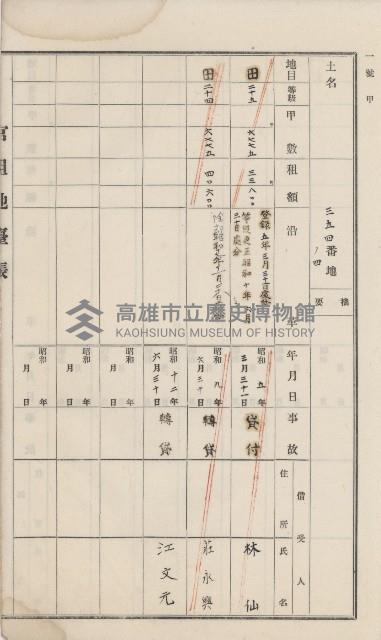 一號甲
土名
三五四番地
ノ四
摘要
地目 等級 甲數 租額 沿革 年月日 事故 借受人
住所 氏名
田 二十五 六八七五 三三八〇〇
登錄五年三月三十日處分
等則更正昭和十年六月
三十日處分
昭和五年三月三十一日 貸付 林仙
田 二十四 六八七五 四〇六〇〇
昭和九年六月三十日 轉貸 莊永興
昭和十二年六月三十日 轉貸 江文元
昭和 年 月 日
昭和 年 月 日
官租地臺帳
高雄市立歷史博物館
KAOHSIUNG MUSEUM OF HISTORY